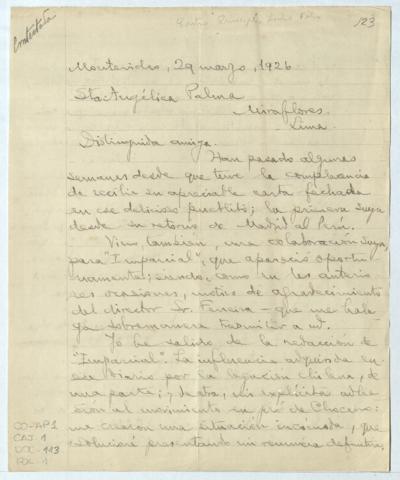 Contestada
123
Montevideo, 29 marzo, 1926
Sta Angélica Palma
Miraflores.
Lima.
Distinguida amiga.
Han pasado algunas
semanas desde que tuve la complacencia
de recibir su apreciable carta fechada
en ese delicioso pueblito; la primera suya
desde su retorno de Madrid al Perú.
Vino también, una colaboración suya,
para "Imparcial", que apareció oportu-
namente; siendo, como en las anterio-
res ocasiones, motivo de agradecimiento
del director Sr. Ferreira – que me halla-
ya sobremanera trasmitir a ud.
Yo he salido de la redacción de
"Imparcial". La influencia adquirida en
ese diario por la legación chilena, de
una parte; y de otra, mi explícita adhe-
sión al movimiento en pró de Chocano:
me crearon una situación incómoda, que
solucioné presentando mi renuncia definitiva.
CO-AP1
CAJ. 1
DOC-113
FOL-1